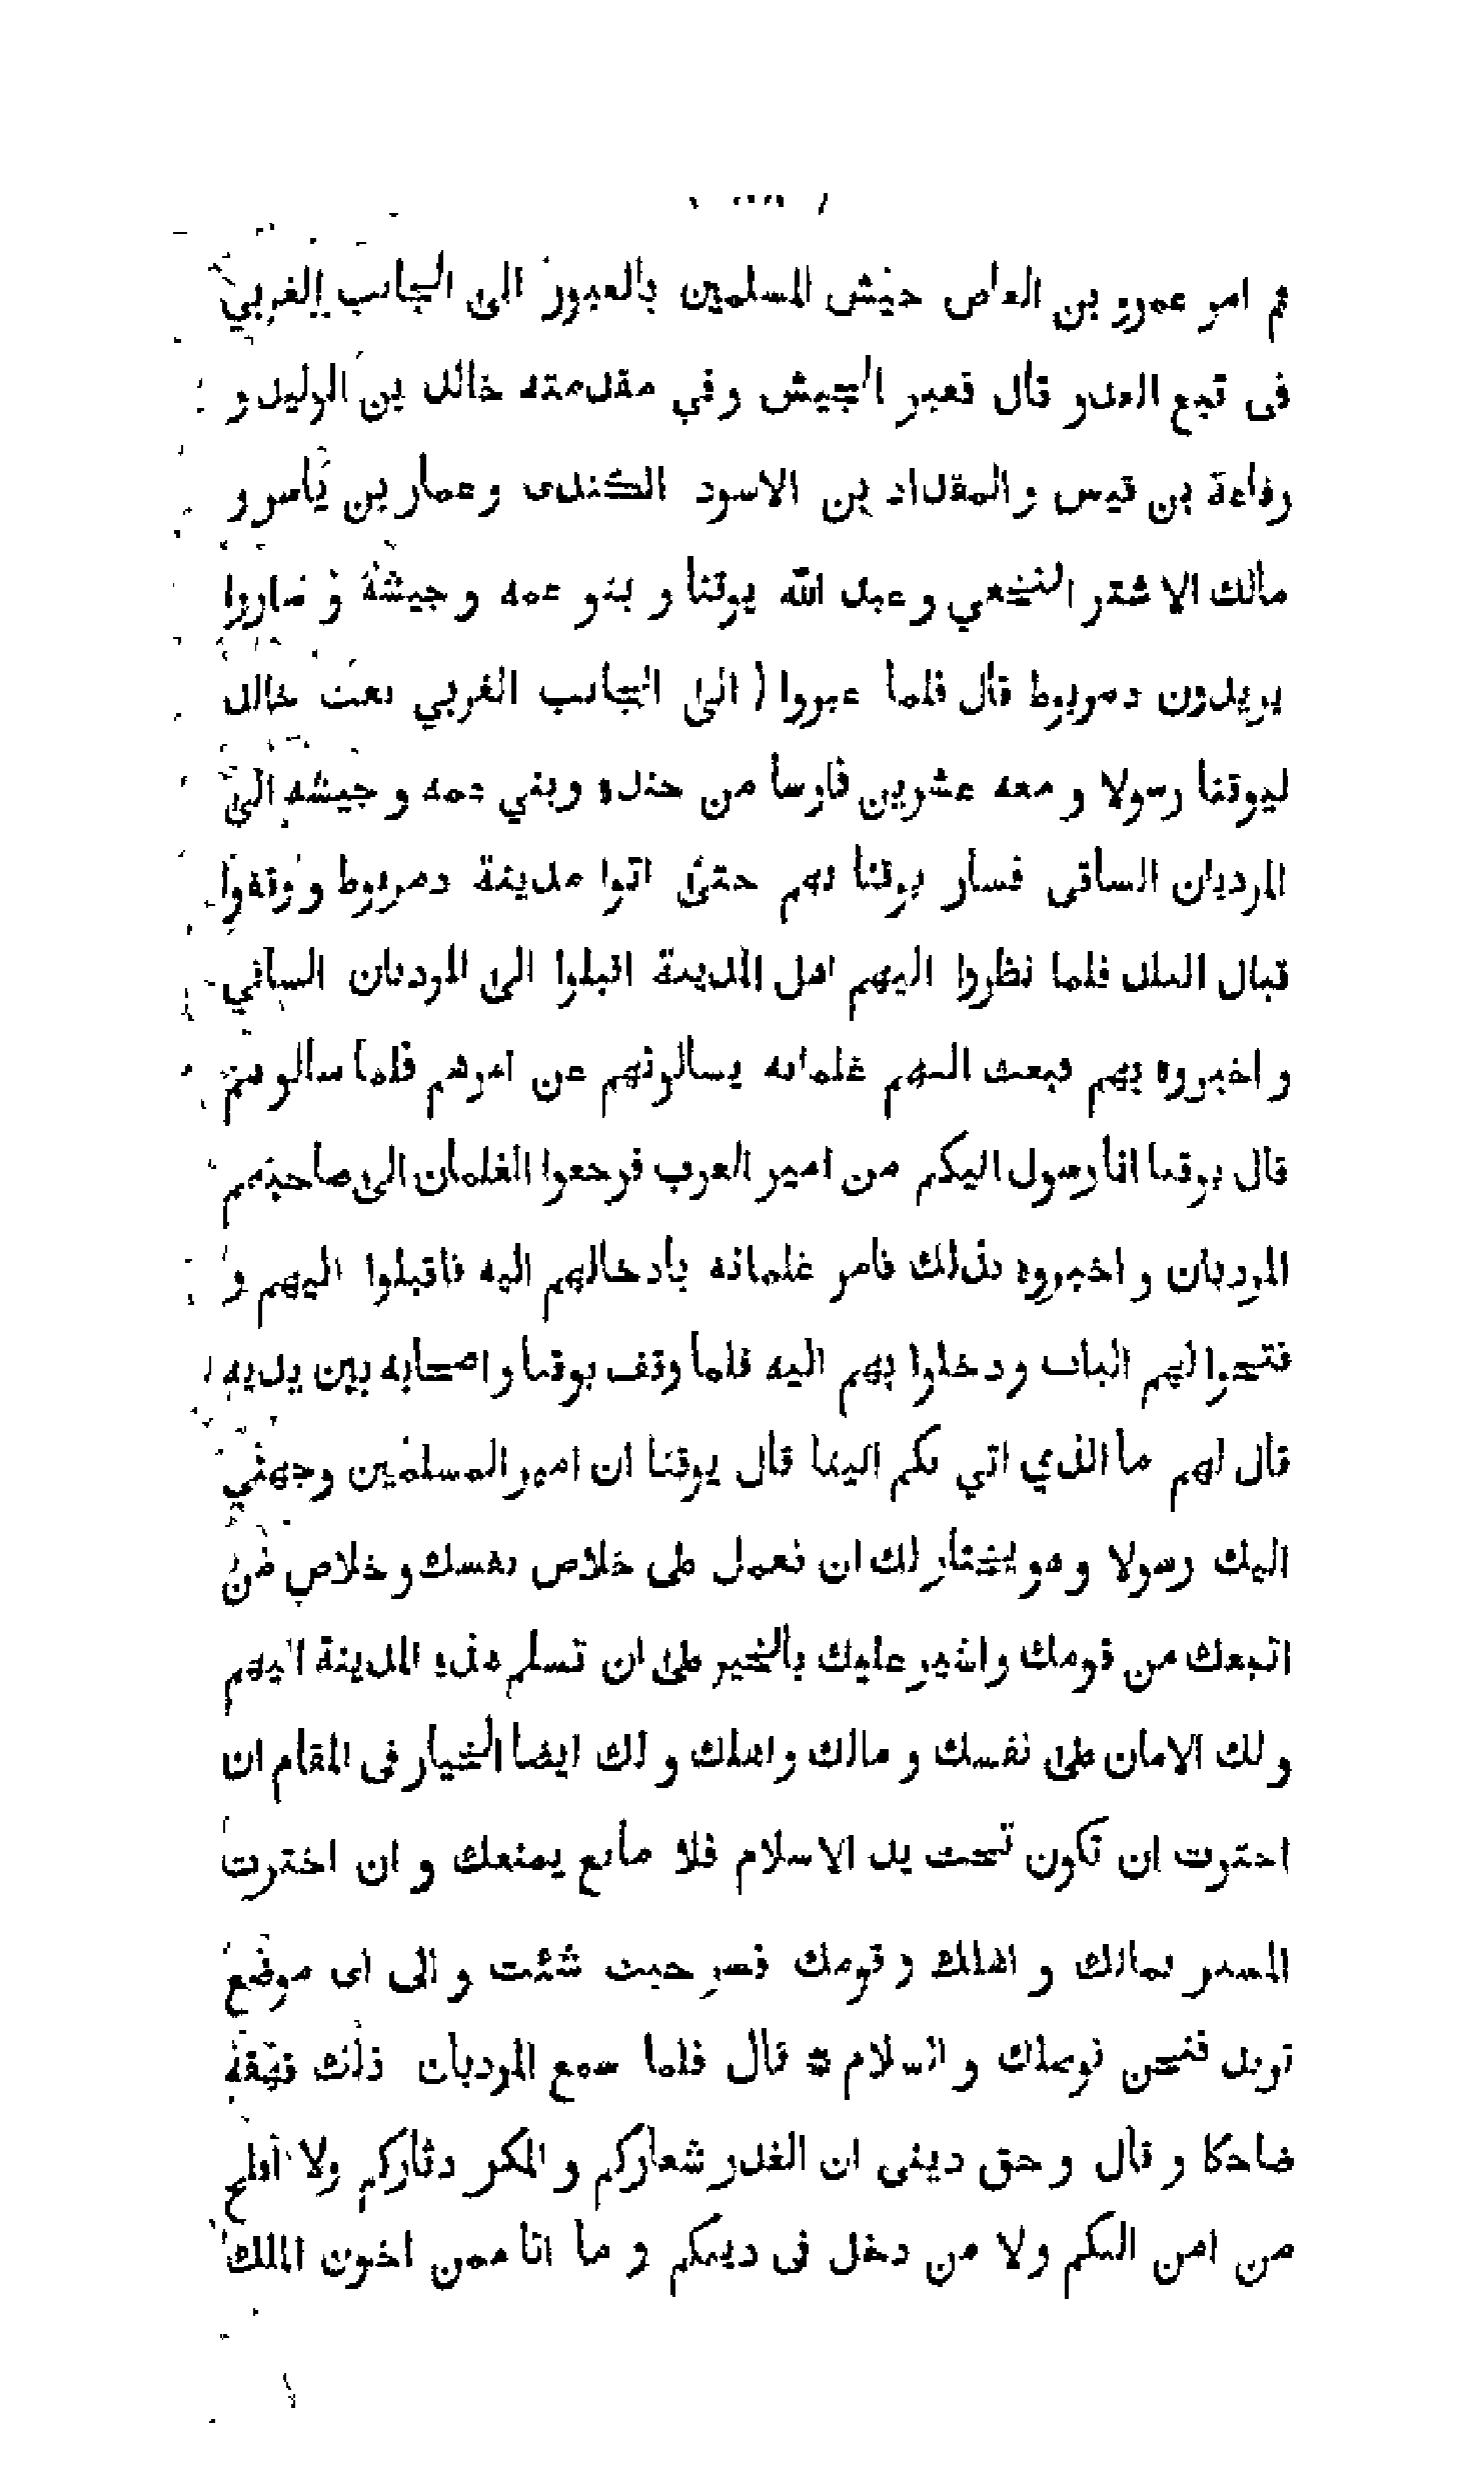 ثم امر عمرو بن العاص جيش المسلمين بالعبور الى الجانب الغربي
فى تبع العدو قال فعبر الجيش وفي مقدمته خالد بن الوليد و
رفاعة بن قيس و المقداد بن الاسود الكندى و عمار بن ياسر و
مالك الاشتر النخعي و عبد الله يوقنا و بنو عمه و جيشه و ساروا
يريدون دمريوط قال فلما عبروا ( الى الجانب الغربي بعث خالد
ليوقنا رسولا و معه عشرين فارسا من جنده وبني عمه و جيشه الى
المرديان الساقى فسار يوقنا بهم حتى اتوا مدينة دمريوط و وقفوا
قبال البلد فلما نظروا اليهم اهل المدينة اقبلوا الى المرديان الساقي
و اخبروه بهم فبعث اليهم غلمانه يسالونهم عن امرهم فلما سالوهم
قال يوقنا انا رسول اليكم من امير العرب فرجعوا الغلمان الى صاحبهم
المرديان و اخبروه بذلك فامر غلمانه بادخالهم اليه فاقبلوا اليهم و
فتحوا لهم الباب و دخلوا بهم اليه فلما وقف يوقنا و اصحابه بين يديه
قال لهم ما الذي اتي بكم الينا قال يوقنا ان امير المسلمين وجهني
اليك رسولا و هو يختار لك ان تعمل على خلاص نفسك و خلاص من
اتبعك من قومك و اشير عليك بالخير على ان تسلم هذه المدينة اليهم
و لك الامان على نفسك و مالك و اهلك و لك ايضا الخيار فى المقام ان
اخترت ان تكون تحت يد الاسلام فلا مانع يمنعك و ان اخترت
المسير بمالك و اهلك و قومك فسر حيث شئت و الى اى موضع
تريد فنحن نوصلك و السلام * قال فلما سمع المرديان ذلك قهقه
ضاحكا و قال و حق دينى ان الغدر شعاركم و المكر دثاركم ولا افلح
من امن اليكم ولا من دخل فى دينكم و ما انا ممن اخون الملك